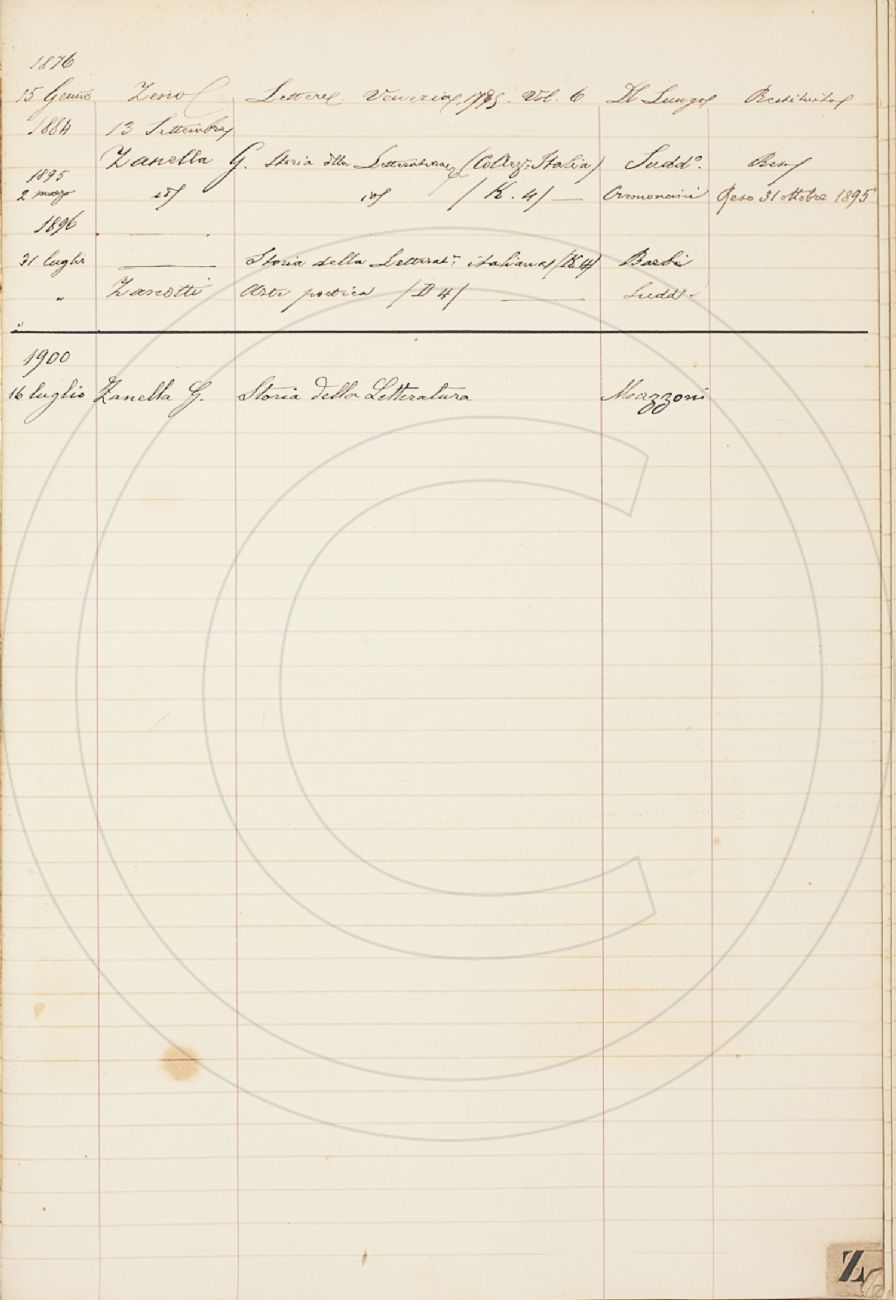 1876
15 Genno Zeno Lettere. Venezia 1785. Vol. 6 Del Lungo Restituito
1884 13 Settembre
Zanella G. Storia della Letteratura (Collez. Italia) Sudd.º Reso
1895
2 marzo id id /K. 4/ — Reso 31 ottobre 1895
1896
31 luglio — Storia della Letterat.ª italiana /K 4/ Barbi
" Zanotti Arte poetica /D 4/ — Sudd.º
1900
16 luglio Zanella G. Storia della Letteratura Mazzoni
Z